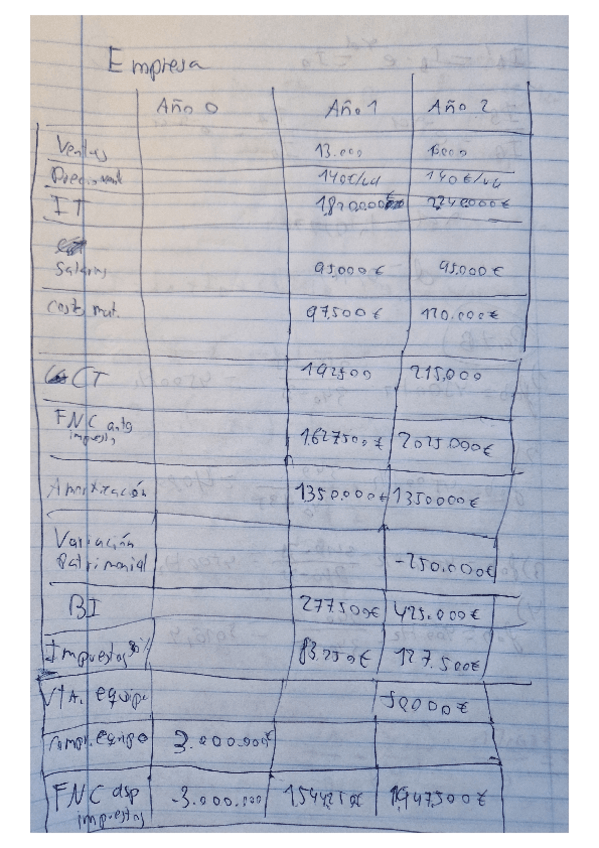 Empresa
Año 0 Año 1 Año 2
Ventas 13.000
140€/ud 140€/ud
IT 2240000€
Salarios 95.000€ 95.000€
cost mat. 97500€ 120.000€
CT 192500 215.000
FNC antes impuestos 1.627500€ 2025.000€
Amortización 1350.000€ 1350000€
Variación Patrimonial -250.000€
BI 277500€ 425.000€
Impuestos 30% 83.250€ 127.500€
Vta. equipo 50000€
compr. equipo 3.000.000€
FNC dsp impuestos -3.000.000 1.544250€ 1.947.500€